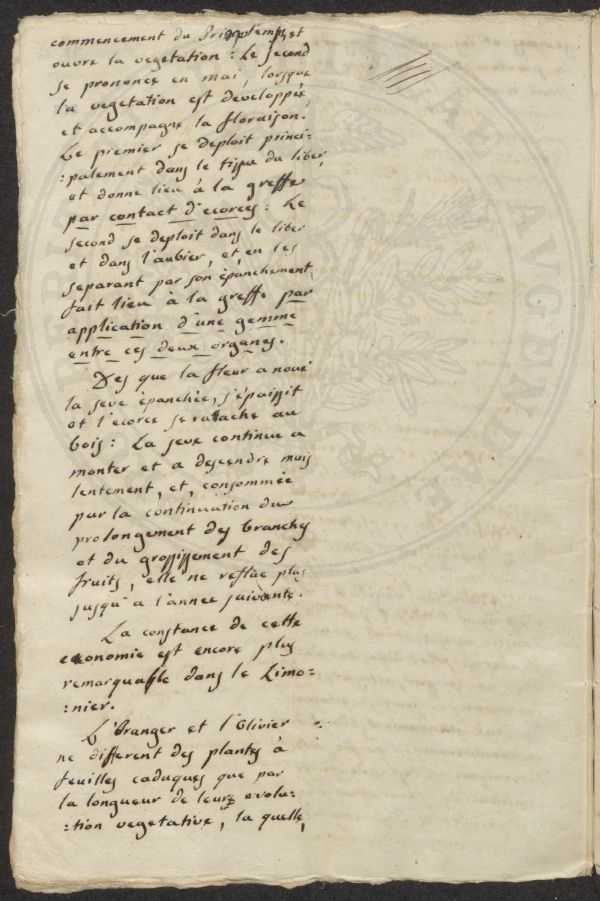 commencement du Printemps, et
ouvre la vegetation : Le second
se prononce en mai, lorsque
la vegetation est developpée,
et accompagne la floraison.
Le premier se deploit princi:
:palement dans le tissu du liber,
et donne lieu à la greffe
par contact d'ecorces : Le
second se deploit dans le liber
et dans l'aubier, et en les
separant par son épanchement,
fait lieu à la greffe par
application d'une gemme
entre ces deux organes.
Des que la fleur a noué
la seve épanchée, s'épaissit
et l'ecorce se ratache au
bois : La seve continue a
monter et a descendre mais
lentement, et, consommée
par la continuation du
prolongement des branches
et du grossissement des
fruits, elle ne reflue plus
jusqu'a l'année suivante.
La constance de cette
economie est encore plus
remarquable dans le Limo:
:nier.
L'Oranger et l'Olivier
ne different des plantes à
feuilles caduques que par
la longueur de leurs evolu:
:tion vegetative, la quelle,